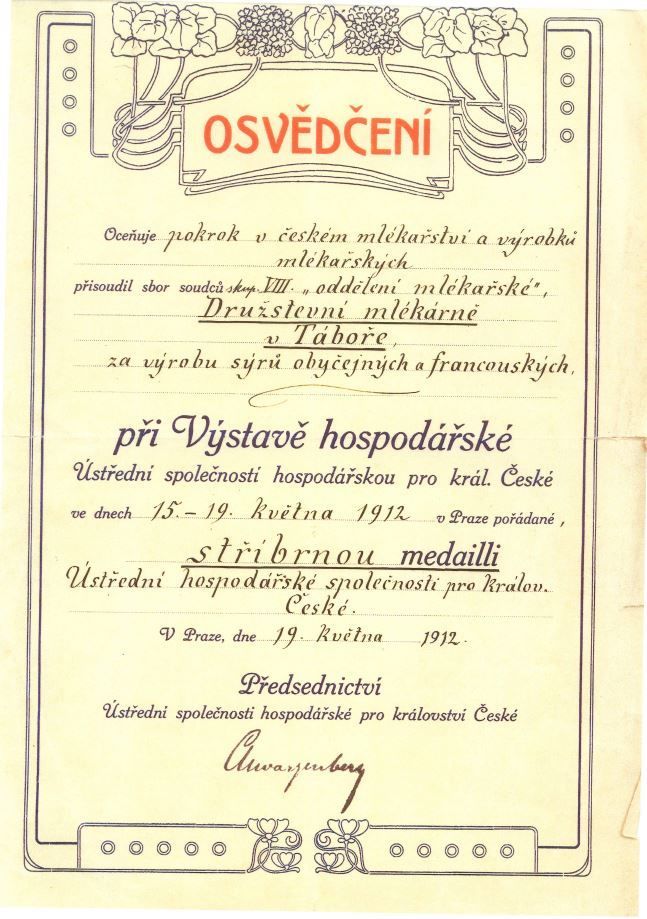 OSVĚDČENÍ
Oceňuje pokrok v českém mlékařství a výrobků
mlékařských
přisoudil sbor soudců skup. VIII. „oddělení mlékařské",
Družstevní mlékárně
v Táboře,
za výrobu sýrů obyčejných a francouských,
při Výstavě hospodářské
Ústřední společností hospodářskou pro král. České
ve dnech 15.–19. května 1912 v Praze pořádané,
stříbrnou medailli
Ústřední hospodářské společnosti pro králov.
České.
V Praze, dne 19. května 1912.
Předsednictví
Ústřední společnosti hospodářské pro království České